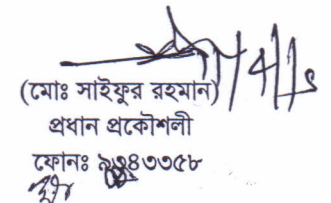 (মোঃ সাইফুর রহমান)
প্রধান প্রকৌশলী
ফোনঃ ৯৩৪৩৩৫৮